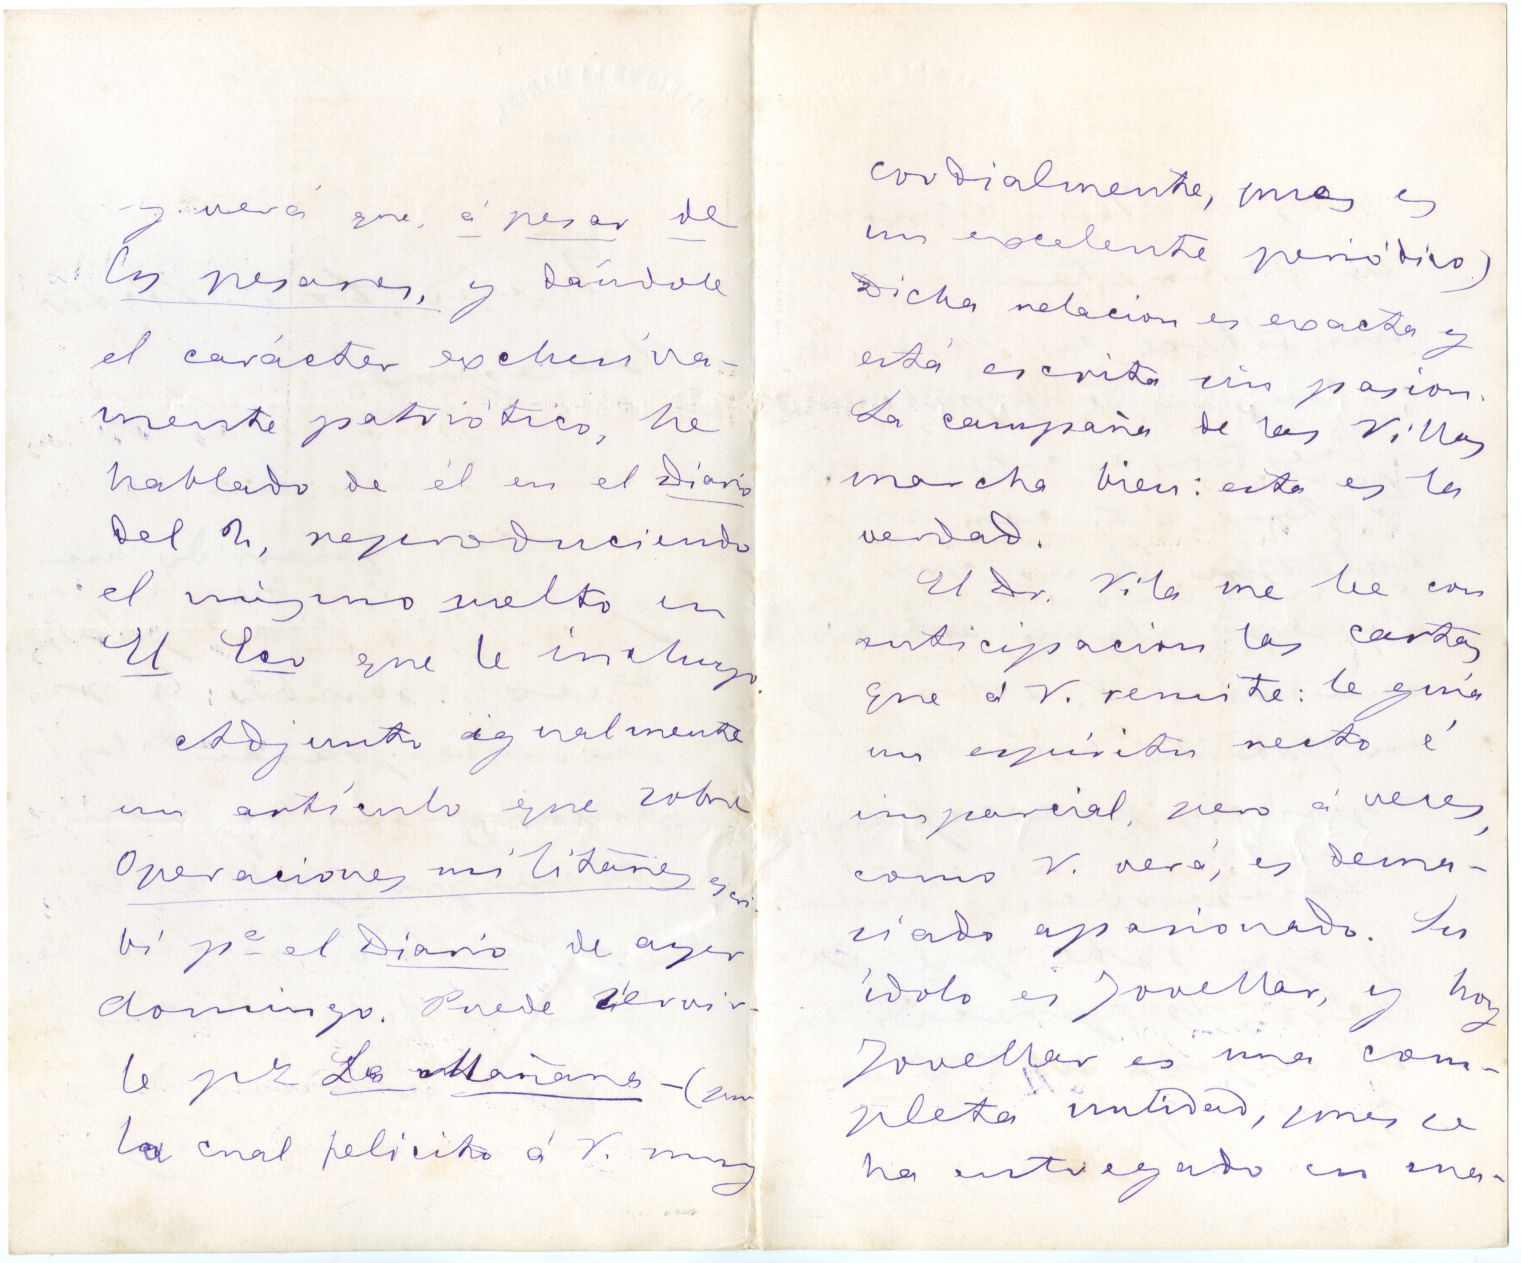 y verá que, á pesar de
los pesares, y dándole
el carácter exclusiva-
mente patriótico, he
hablado de él en el Diario
del 2, reproduciendo
el mismo suelto en
El Eco que le incluyo.
Adjunto igualmente
un artículo que sobre
Operaciones militares escri-
bí pª el Diario de ayer
domingo. Puede servir-
le pª La Mañana — (por
la cual felicito á V. muy
cordialmente, pues es
un excelente periódico)
Dicha relacion es exacta y
está escrita sin pasion.
La campaña de las Villas
marcha bien: esta es la
verdad.
El Dr. Vila me lee con
anticipacion las cartas
que á V. remite: le guía
un espíritu recto é
imparcial, pero á veces,
como V. verá, es dema-
siado apasionado. Su
ídolo es Jovellar, y hoy
Jovellar es una com-
pleta nulidad, pues se
ha entregado en ma-